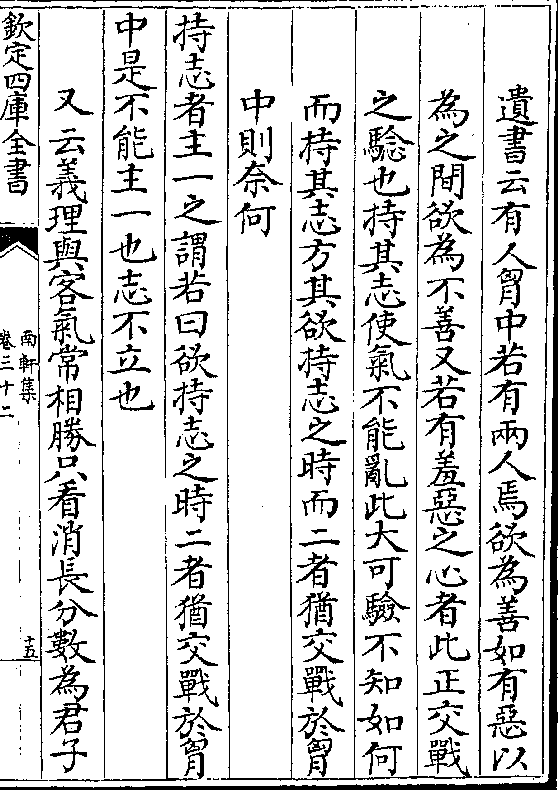 遺書云有人胷中若有兩人焉欲為善如有惡以
為之間欲為不善又若有羞惡之心者此正交戰
之騐也持其志使氣不能亂此大可驗不知如何
而持其志方其欲持志之時而二者猶交戰於胷
中則奈何
持志者主一之謂若曰欲持志之時二者猶交戰於胷
中是不能主一也志不立也
又云義理與客氣常相勝只看消長分數為君子
欽定四庫全書
南軒集
卷三十二
十五